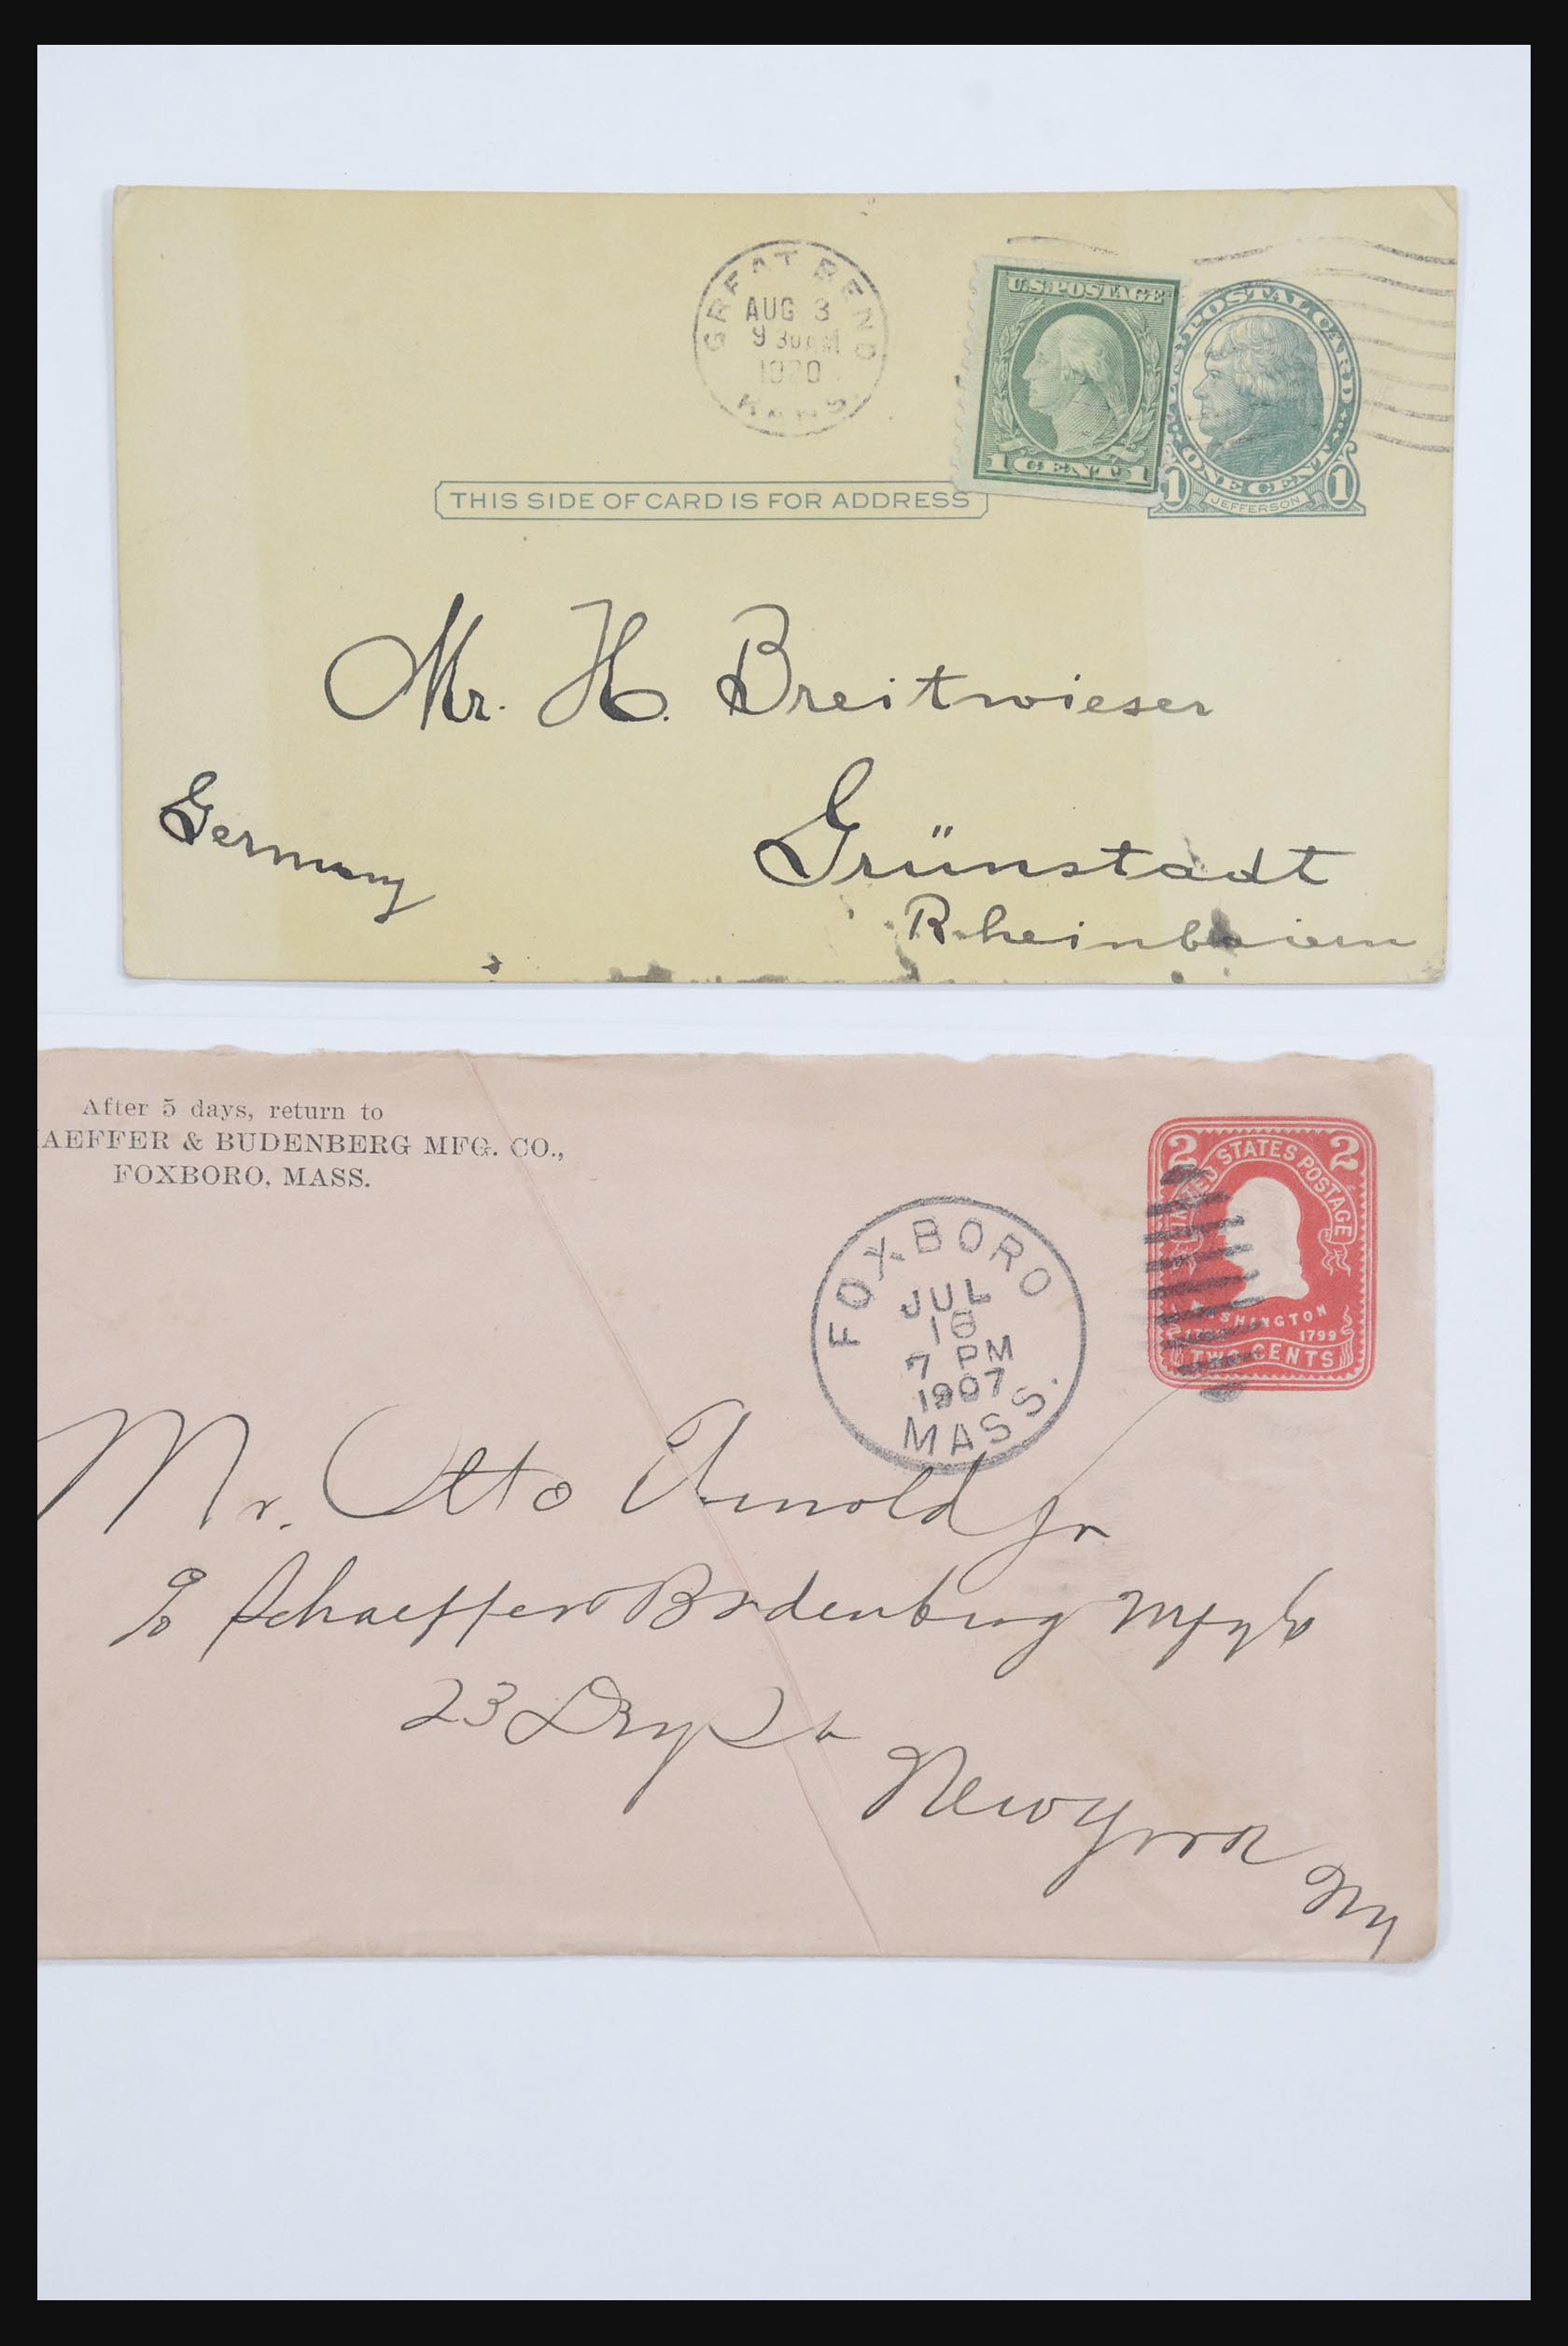 GREAT BEND
AUG 3
9 30 AM
1920
KANS.
U.S. POSTAGE
1 CENT 1
POSTAL CARD
1 ONE CENT 1
JEFFERSON
THIS SIDE OF CARD IS FOR ADDRESS
Mr. H. Breitwieser
Germany
Grünstadt
Rheinbaiern
After 5 days, return to
HAEFFER & BUDENBERG MFG. CO.,
FOXBORO, MASS.
2 UNITED STATES POSTAGE 2
WASHINGTON
1799
TWO CENTS
FOXBORO
JUL
16
7 PM
1907
MASS.
Mr. Otto Arnold Jr
c/o Schaeffer Budenberg Mfg Co
23 Dey St
New York
NY